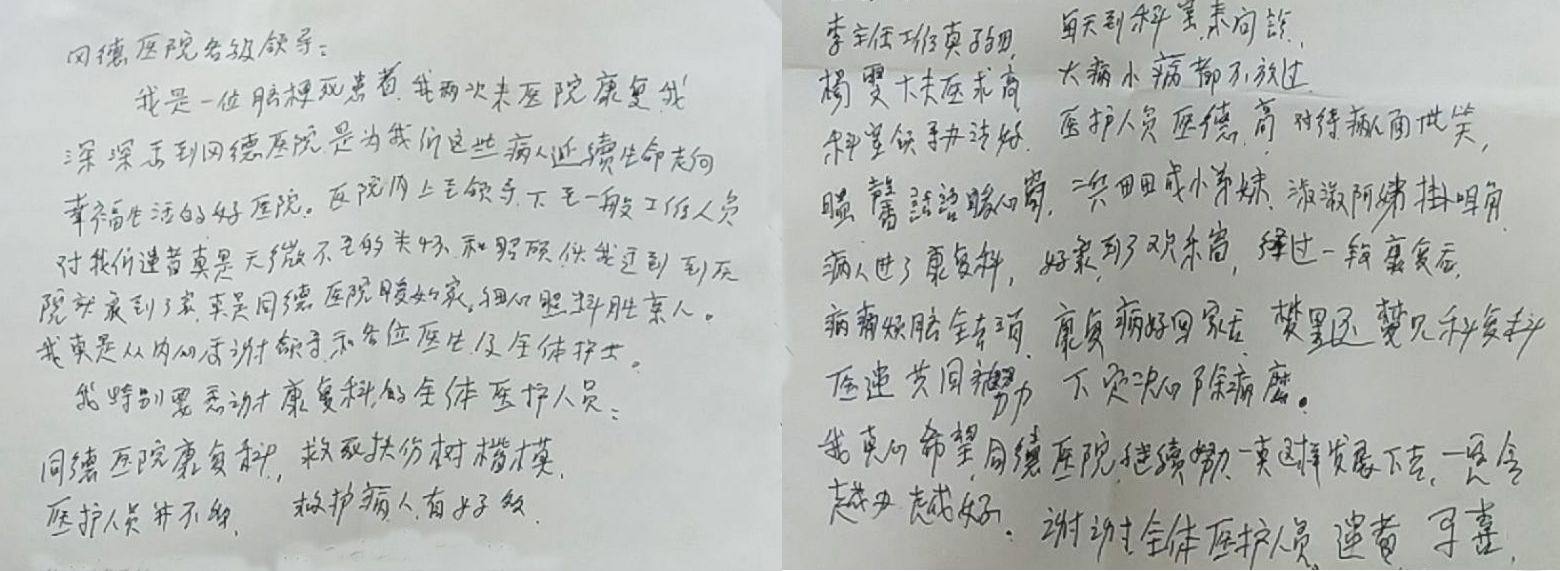 同德医院各级领导：
我是一位脑梗死患者，我两次来医院康复我
深深感到同德医院是为我们这些病人延续生命走向
幸福生活的好医院。医院内上至领导、下至一般工作人员
对我们患者真是无微不至的关怀和照顾，使我感到到医
院就象到了家，真是同德医院暖如家，细心照料胜亲人。
我真是从内心感谢领导和各位医生及全体护士。
我特别要感谢康复科的全体医护人员：
同德医院康复科，救死扶伤树楷模，
医护人员并不多，救护病人有好多，
李主任工作真仔细，每天到科室来问诊，
杨雯大夫医术高 大病小病都不放过
科室领导办法好 医护人员医德高 对待病人面带笑，
温馨话语暖心窝，囡囡小弟妹、淑淑阿姨挂咀角
病人进了康复科，好象到了欢乐窝，经过一段康复后，
病痛烦脑全去项 康复病好回家后 梦里还梦见科复科
医患共同努力 下定决心除病魔。
我真心希望同德医院，继续努力一直这样发展下去，一定会
越办越好。谢谢全体医护人员 患者